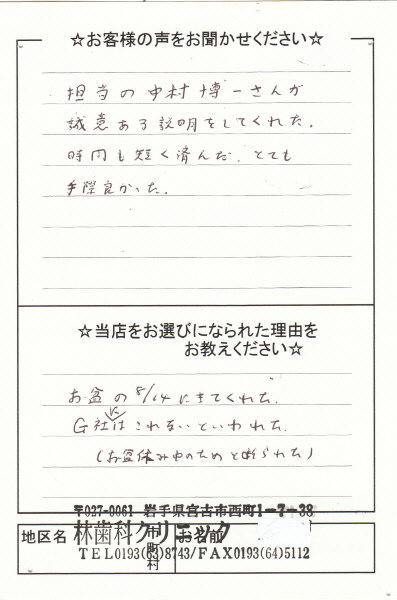 ☆お客様の声をお聞かせください☆
担当の中村博一さんが
誠意ある説明をしてくれた。
時間も短く済んだ。とても
手際良かった。
☆当店をお選びになられた理由を
お教えください☆
お盆の8/14にきてくれた
G社にはこれないといわれた。
(お盆休み中のためと断られた)
〒027-0061 岩手県宮古市西町1-7-38
地区名
林歯科クリニック
市町村
お名前
TEL0193(63)8743/FAX0193(64)5112